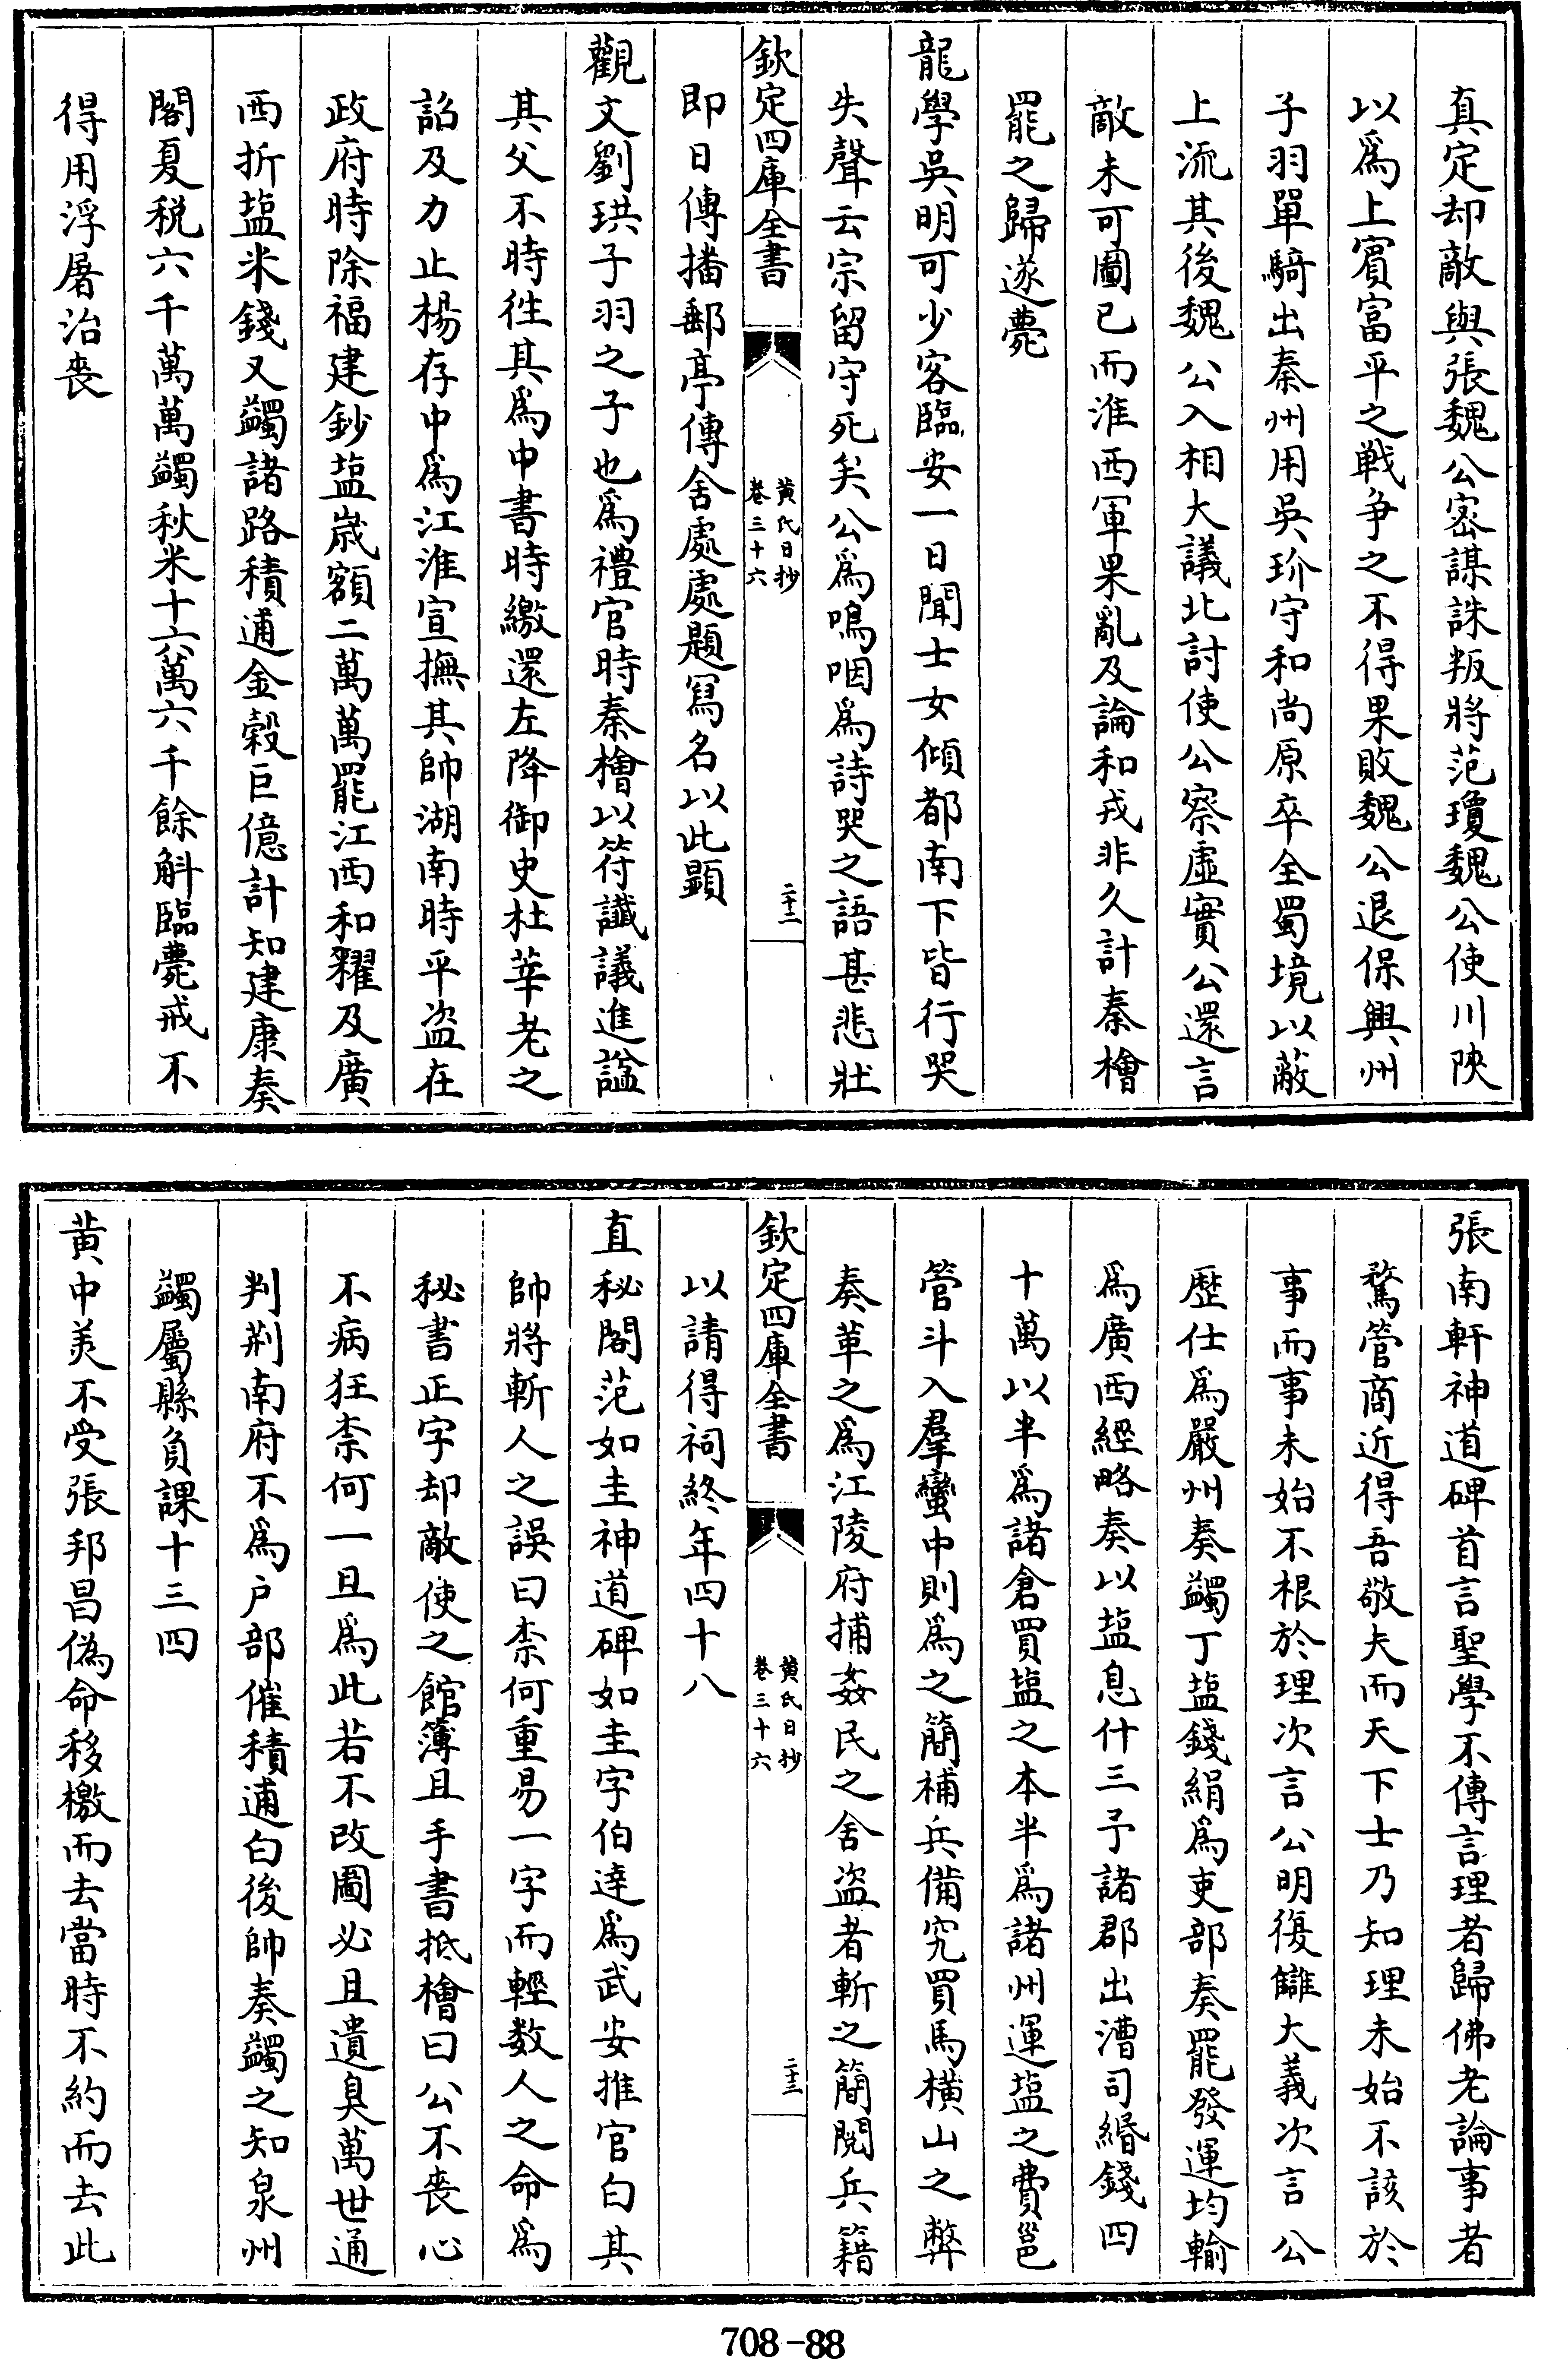 真定却敵與張魏公密謀誅叛將范瓊魏公使川陜
以爲上賓富平之戰爭之不得果敗魏公退保興州
子羽單騎出秦州用吳玠守和尚原卒全蜀境以蔽
上流其後魏公入相大議北討使公察虛實公還言
敵未可圖已而淮西軍果亂及論和戎非久計秦檜
罷之歸遂薨
龍學吳明可少客臨安一日聞士女傾都南下皆行哭
失聲云宗留守死矣公爲嗚咽爲詩哭之語甚悲壯
欽定四庫全書
黃氏日抄
卷三十六
二十二
即日傳播郵亭傳舍處處題寫名以此顯
觀文劉珙子羽之子也爲禮官時秦檜以符讖議進謚
其父不時徃其爲中書時繳還左降御史杜莘老之
詔及力止楊存中爲江淮宣撫其帥湖南時平盜在
政府時除福建鈔塩歳額二萬萬罷江西和糴及廣
西折塩米錢又蠲諸路積逋金穀巨億計知建康奏
閣夏税六千萬萬蠲秋米十六萬六千餘斛臨薨戒不
得用浮屠治喪
張南軒神道碑首言聖學不傳言理者歸佛老論事者
騖管商近得吾敬夫而天下士乃知理未始不該於
事而事未始不根於理次言公明復讎大義次言公
歷仕爲嚴州奏蠲丁塩錢絹爲吏部奏罷發運均輸
爲廣西經略奏以塩息什三予諸郡出漕司緡錢四
十萬以半爲諸倉買塩之本半爲諸州運塩之費邕
管斗入羣蠻中則爲之簡補兵備究買馬横山之弊
奏革之爲江陵府捕姦民之舍盜者斬之簡閱兵籍
欽定四庫全書
黃氏日抄
卷三十六
二十三
以請得祠終年四十八
直秘閣范如圭神道碑如圭字伯達爲武安推官白其
帥將斬人之誤曰柰何重易一字而輕数人之命爲
秘書正字却敵使之館簿且手書抵檜曰公不喪心
不病狂柰何一旦爲此若不改圖必且遺臭萬世通
判荆南府不爲户部催積逋白後帥奏蠲之知泉州
蠲屬縣負課十三四
黄中美不受張邦昌偽命移檄而去當時不約而去此
708-88